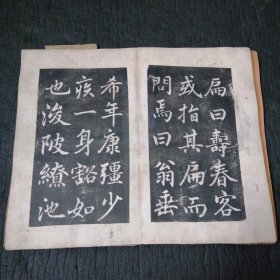 扁曰壽春客
或指其扁而
問焉曰翁垂
希年康彊少
疾一身谿如
也浚陂繚池